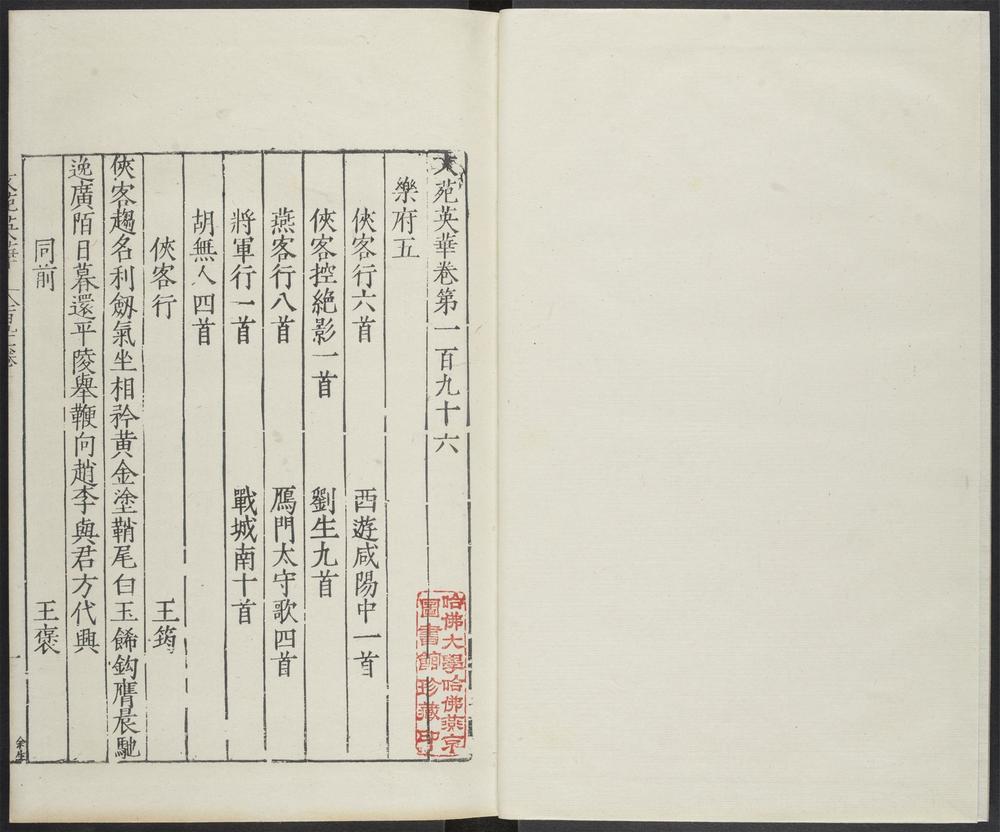 文苑英華卷第一百九十六
樂府五
俠客行六首　西遊咸陽中一首
俠客控絶影一首　劉生九首
燕客行八首　鴈門太守歌四首
將軍行一首　戰城南十首
胡無人四首
俠客行　王筠
俠客趨名利劔氣坐相矜黄金塗鞘尾白玉飾鈎膺晨馳
逸廣陌日暮還平陵舉鞭向趙李與君方代興
同前　王褒
一
哈佛大學哈佛燕京
圖書館珍藏印